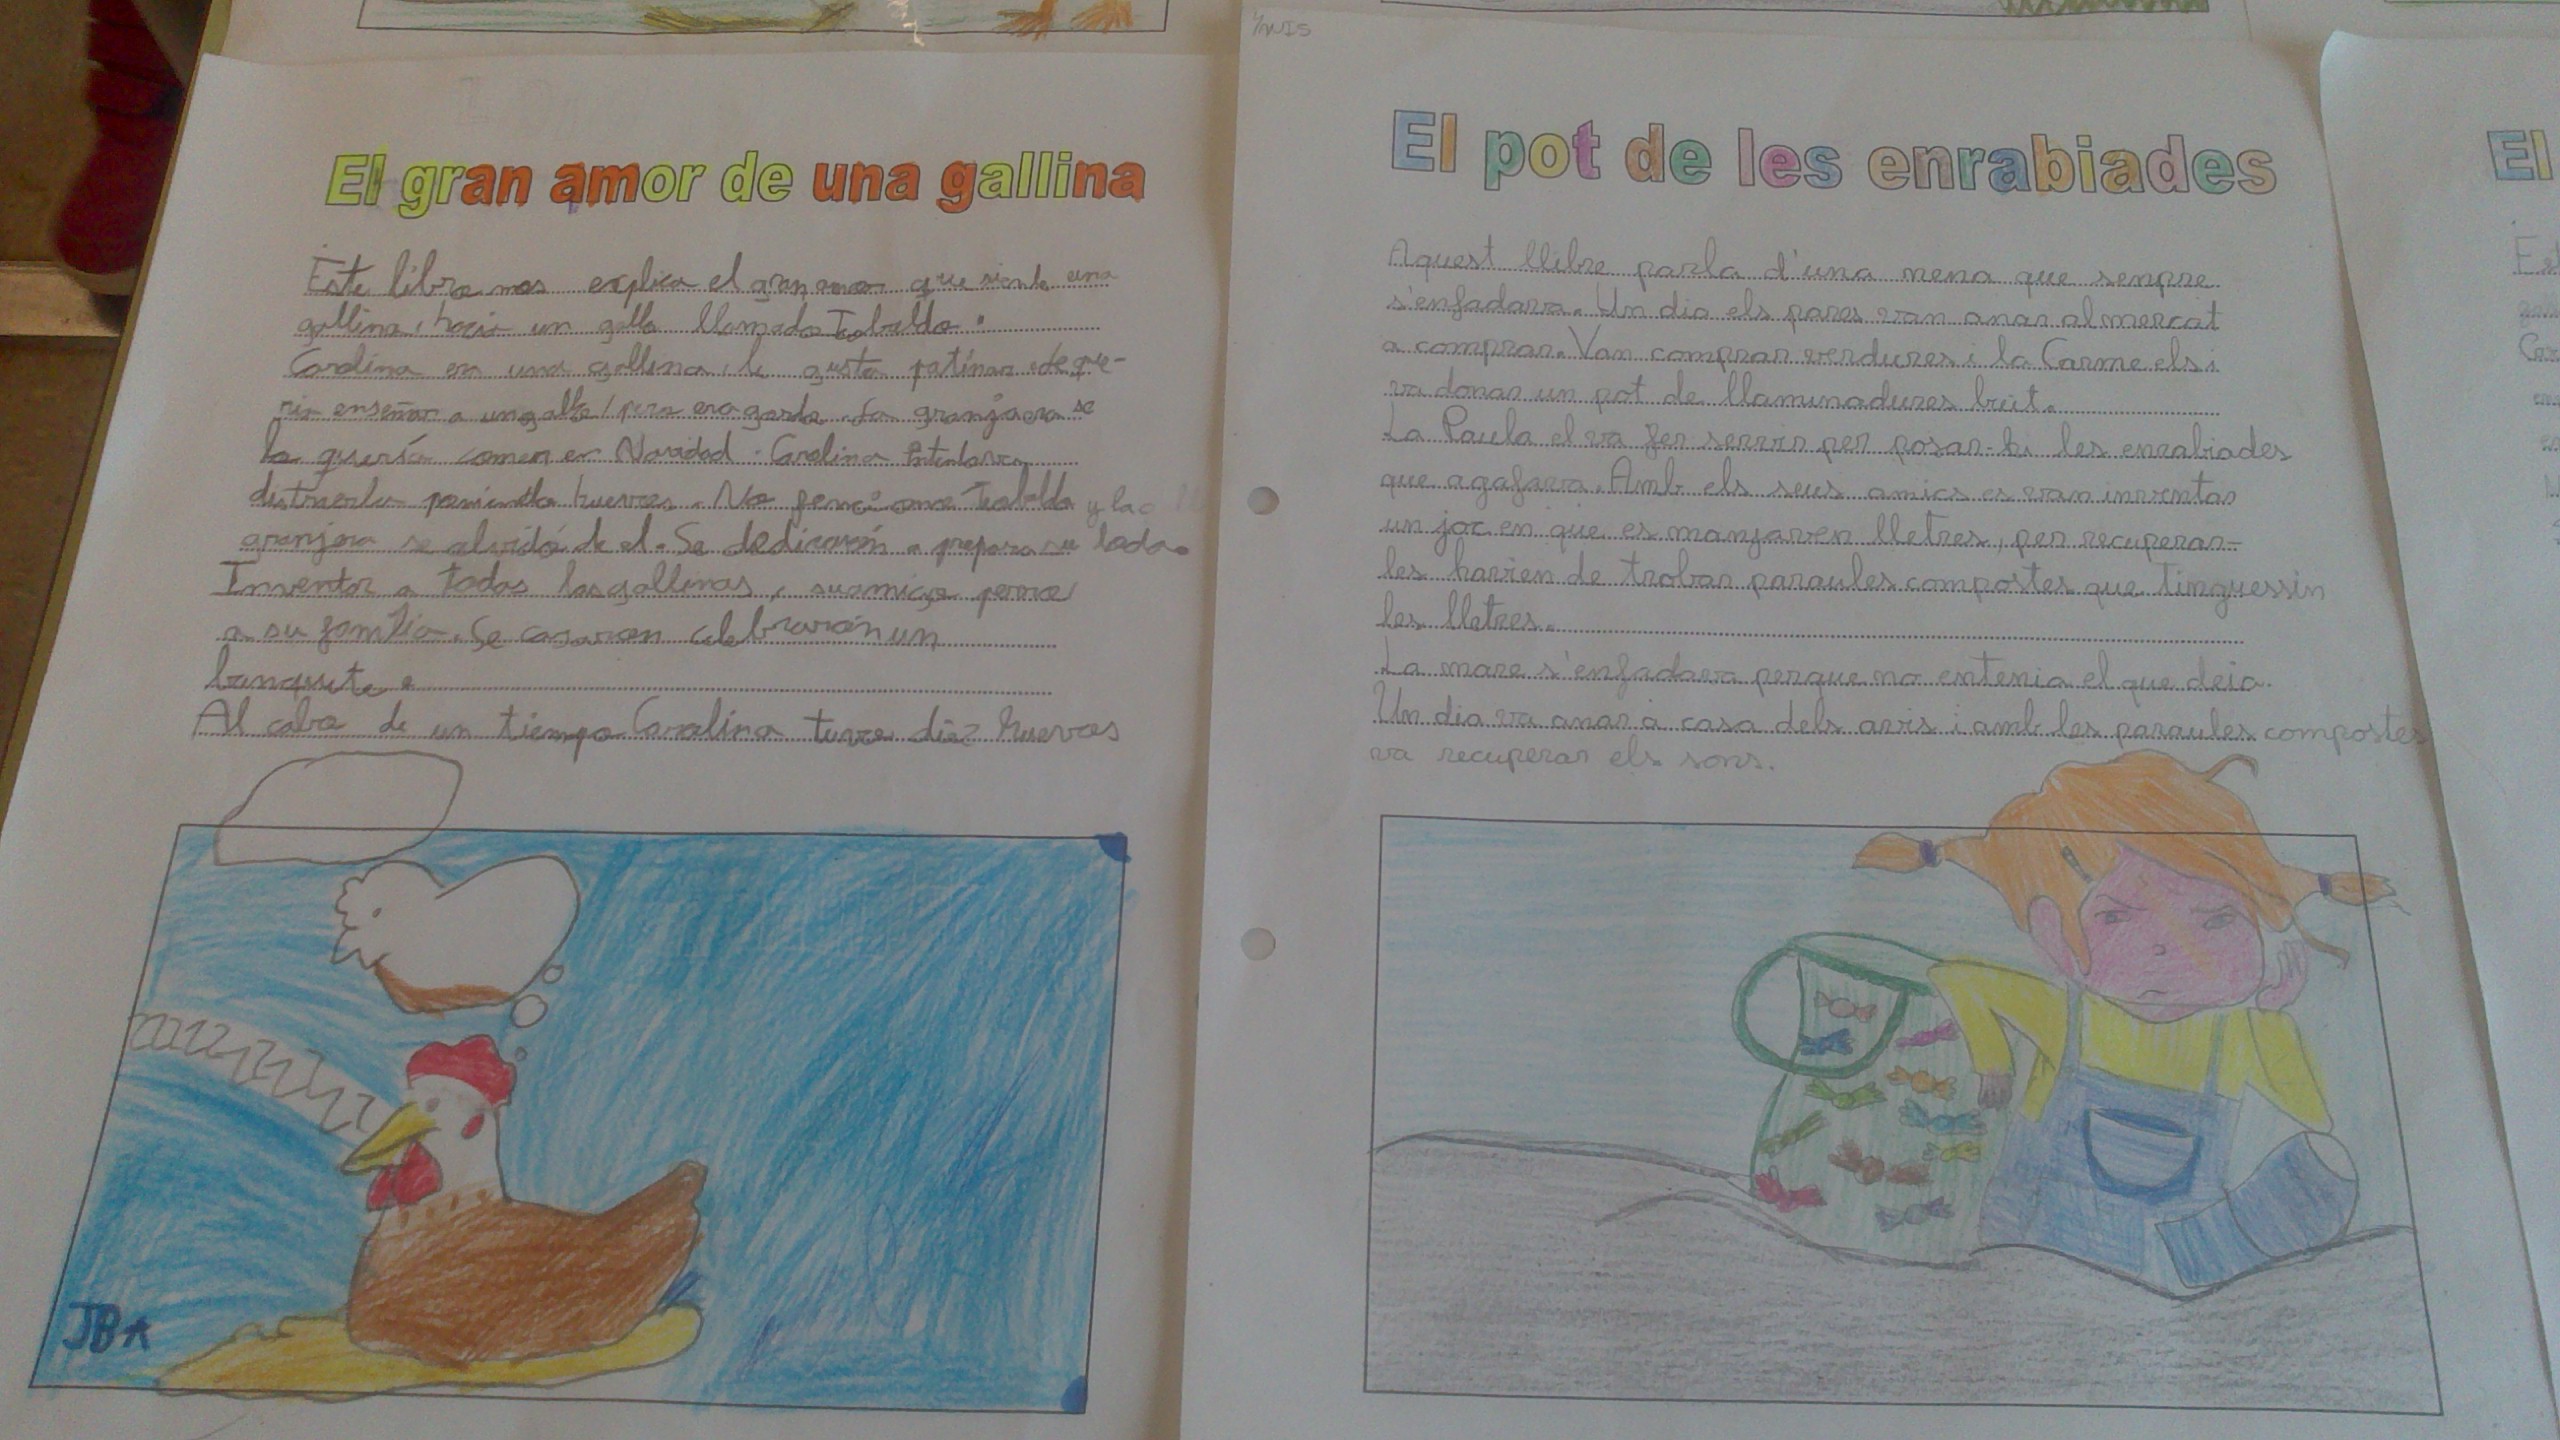 El gran amor de una gallina
Este libro nos explica el gran amor que siente una
gallina, hacia un gallo llamado Tebaldo.
Carolina era una gallina, le gusta patinar
enseñar a un gallo, pero era gordo. La granjera se
lo quería comer en Navidad. Carolina
distraerla poniendo huevos. No Teobaldo y la
granjera se olvidó de el. Se dedicarón a prepara su boda.
a todas las gallinas, su amiga perra
a su familia. Se casaron celebrarón un
banquete.
Al cabo de un tiempo Carolina tuvo diez huevos
JBA
El pot de les enrabiades
Aquest llibre parla d'una nena que sempre
s'enfadava. Un dia els pares van anar al mercat
a comprar. Van comprar verdures i la Carme els i
va donar un pot de llaminadures buit.
La Paula el va fer servir per posar-hi les enrabiades
que agafava. Amb els seus amics es van inventar
un joc en que es manjaven lletres, per recuperar-
les havien de trobar paraules compostes que tinguessin
les lletres.
La mare s'enfadava perque no entenia el que deia.
Un dia va anar a casa dels avis i amb les paraules compostes
va recuperar els sons.
El